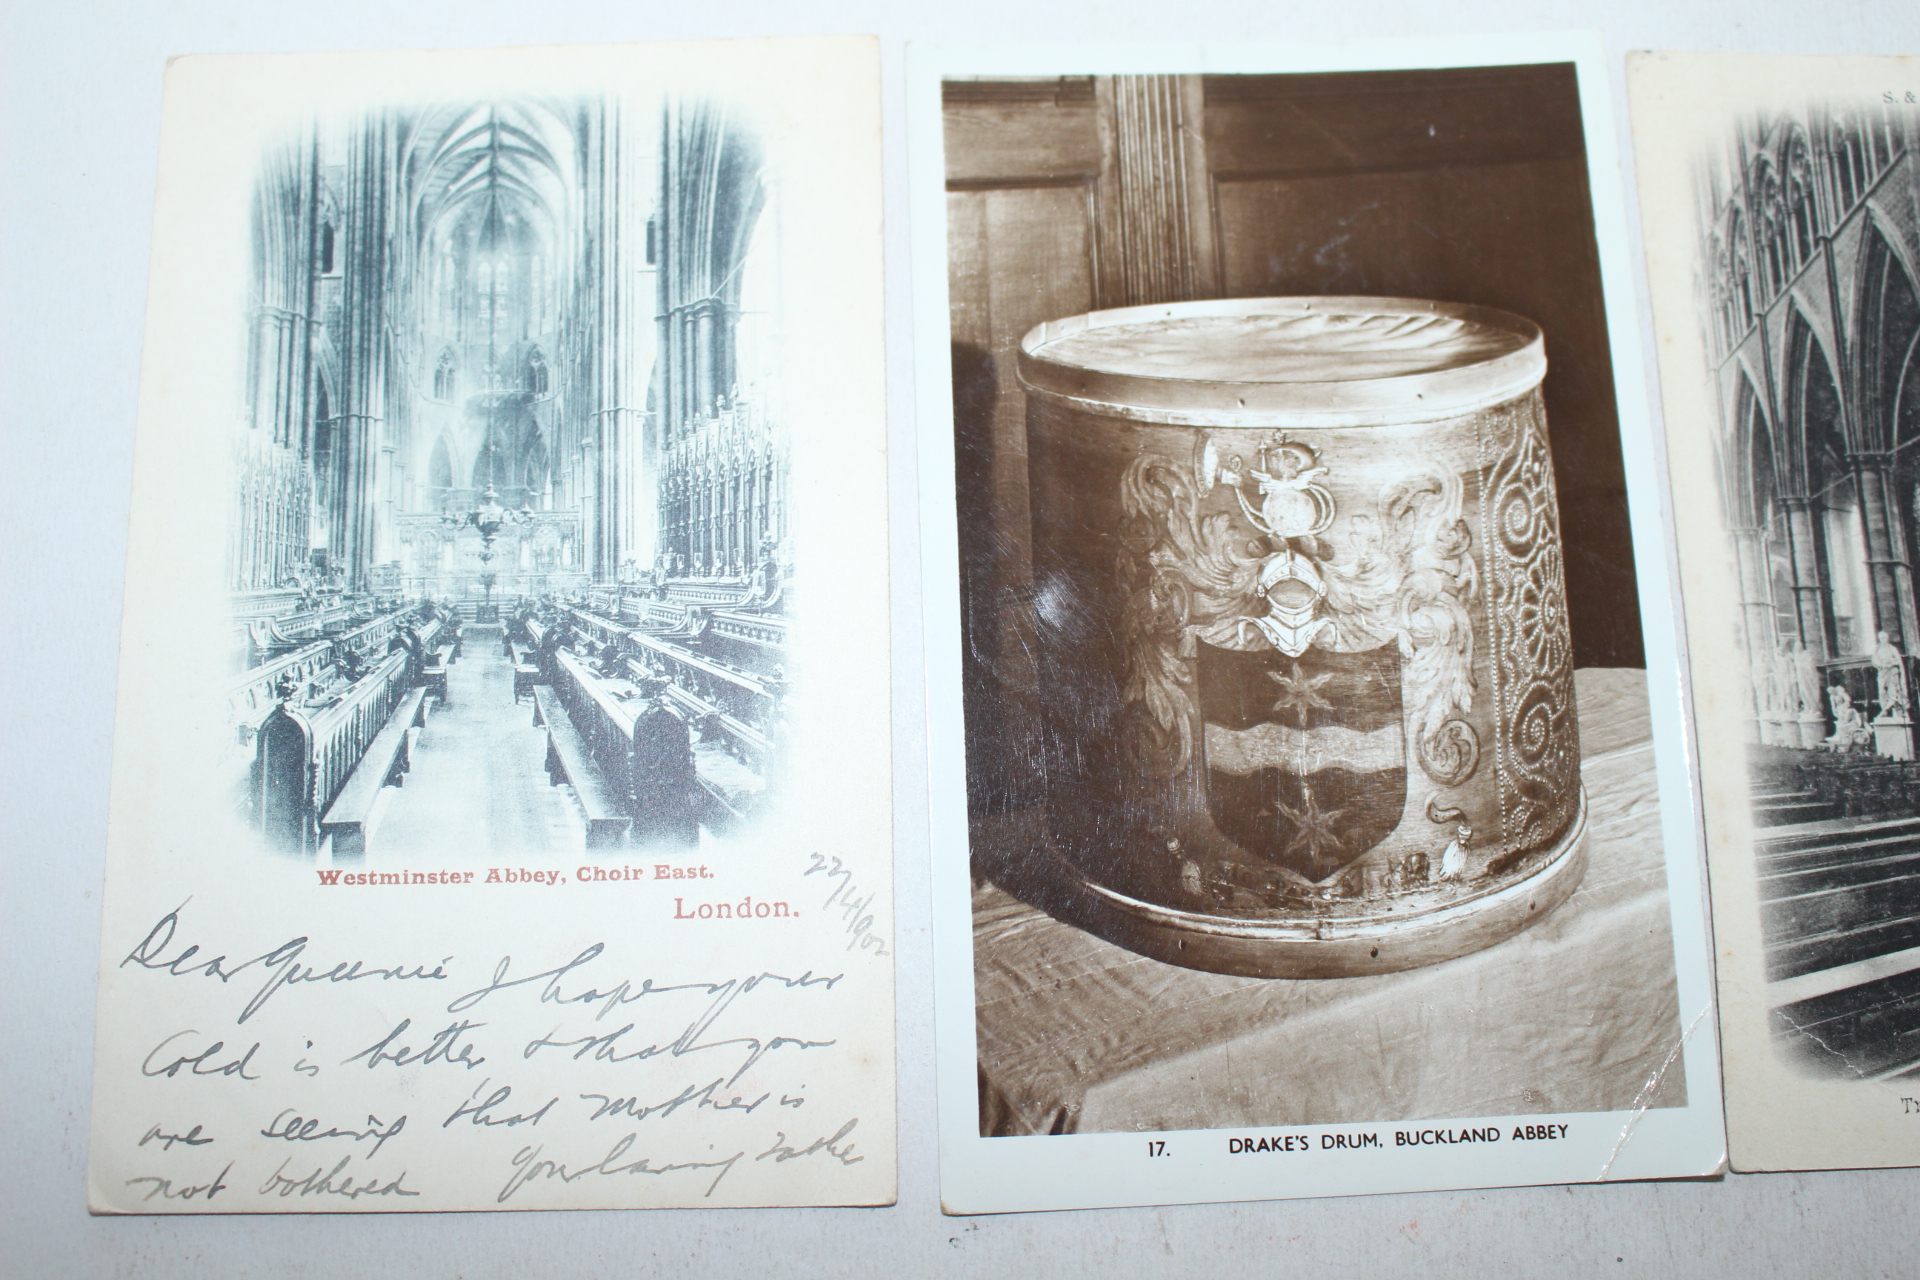 Westminster Abbey, Choir East.
London.
22/4/902
Dear Queenie I hope your
Cold is better & that you
are seeing that Mother is
not bothered Your loving Father
17. DRAKE'S DRUM, BUCKLAND ABBEY
S. &